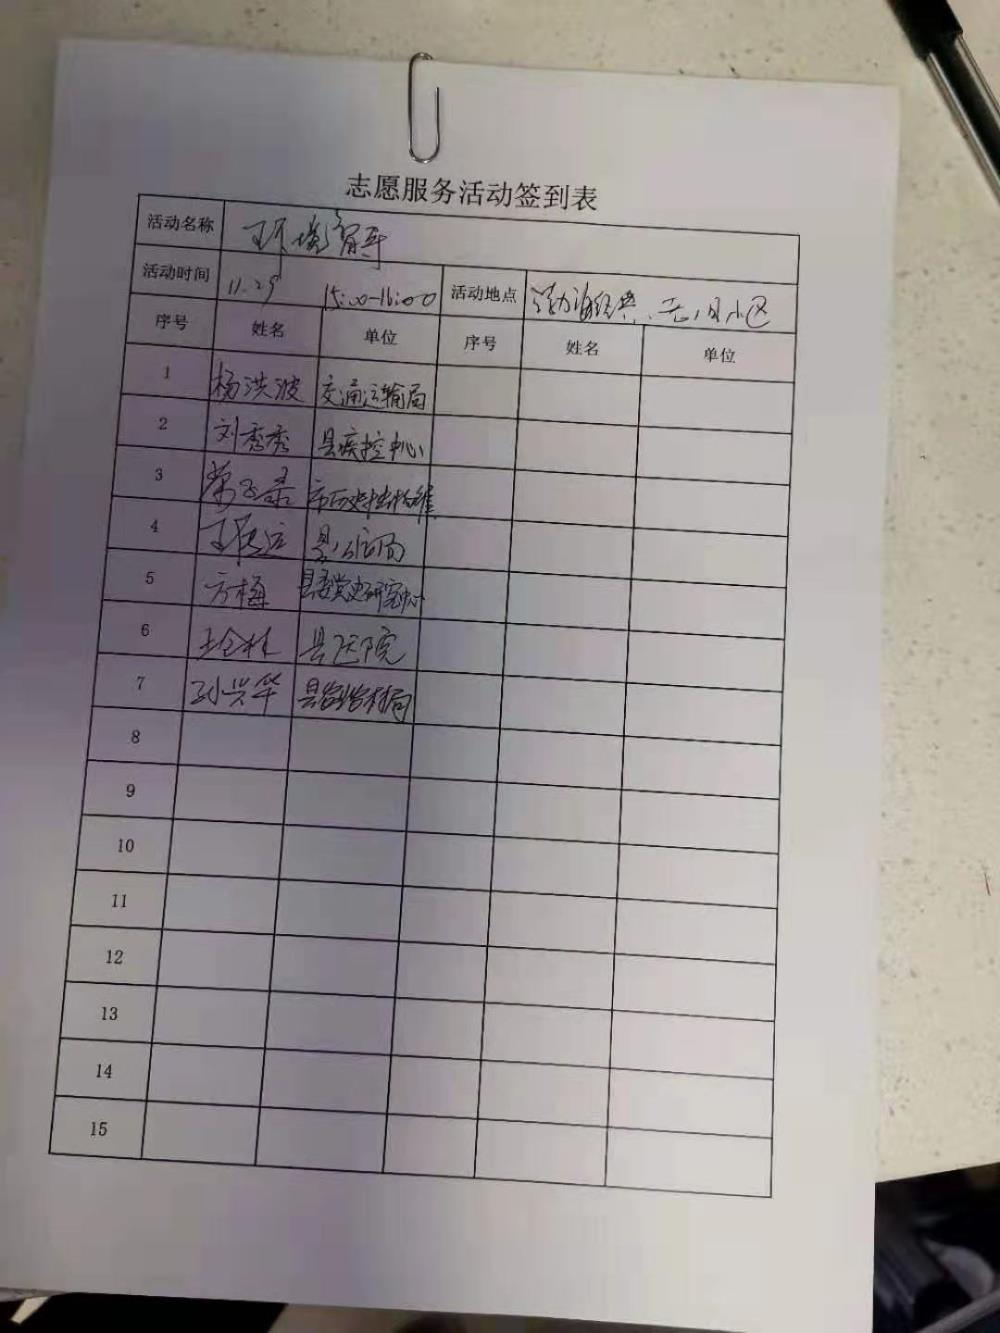 志愿服务活动签到表
活动名称 环境整治
活动时间 11.29 15:00-16:00 活动地点 小区
序号 姓名 单位 序号 姓名 单位
1 杨洪波 交通运输局
2 刘秀秀 县疾控中心
3
4 县信访局
5 方梅 县委党史研究中心
6 县医院
7 孙兴华
8
9
10
11
12
13
14
15